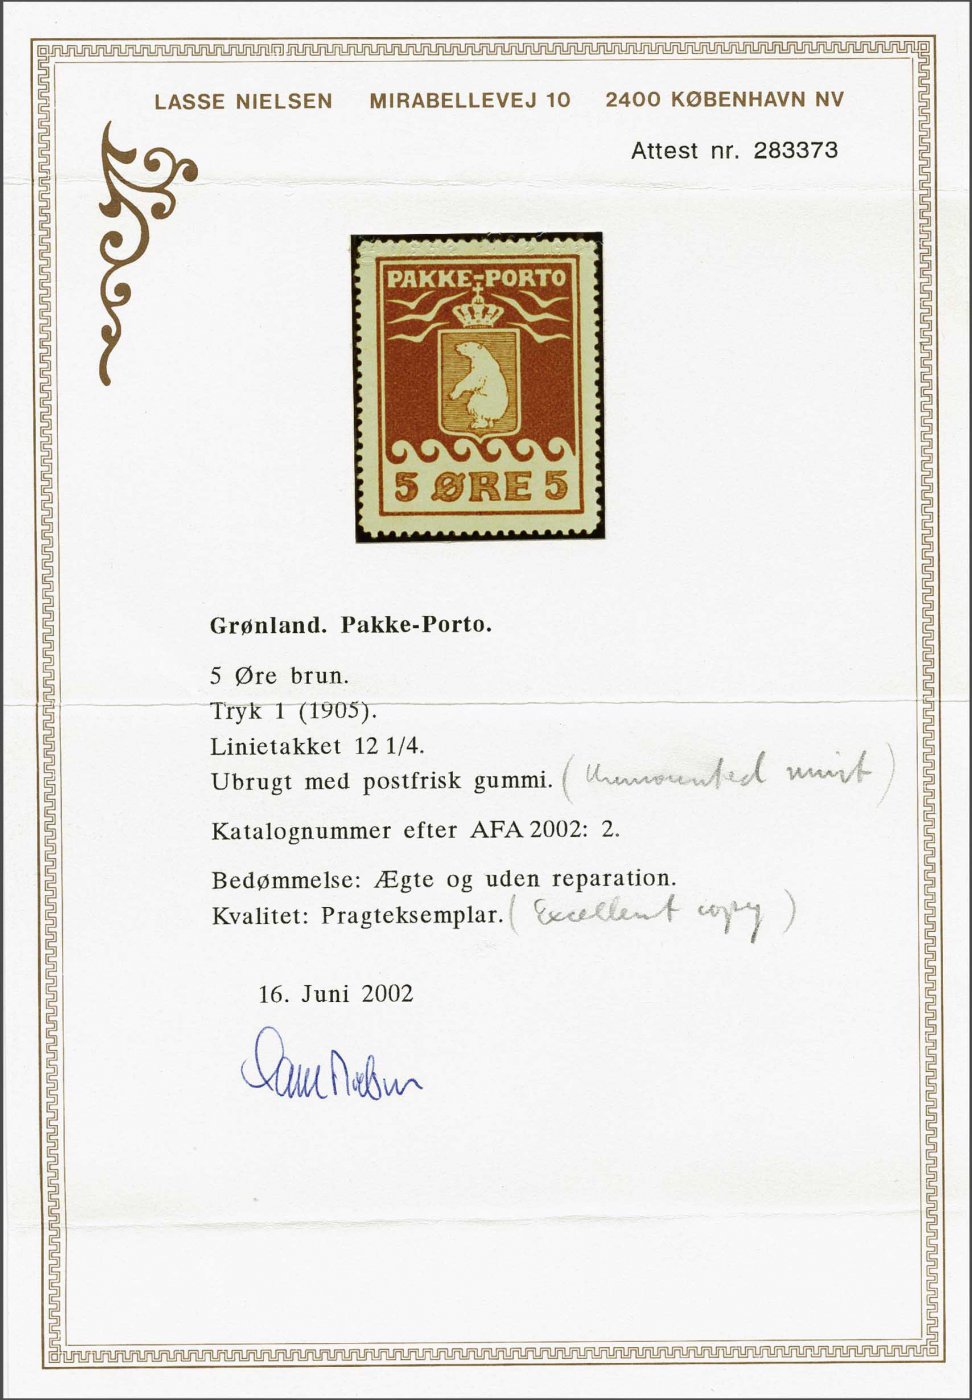 LASSE NIELSEN MIRABELLEVEJ 10 2400 KØBENHAVN NV
Attest nr. 283373
PAKKE-PORTO
5 ØRE 5
Grønland. Pakke-Porto.
5 Øre brun.
Tryk 1 (1905).
Linietakket 12 1/4.
Ubrugt med postfrisk gummi. (Unmounted mint)
Katalognummer efter AFA 2002: 2.
Bedømmelse: Ægte og uden reparation.
Kvalitet: Pragteksemplar. (Excellent copy)
16. Juni 2002
Lasse Nielsen